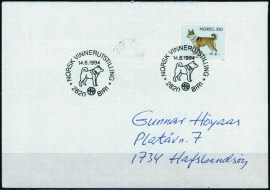 NORSK VINNERUTSTILLING
14.8.1994
2820 BIRI
NOREG 350
NORSK VINNERUTSTILLING
14.8.1994
2820 BIRI
Gunnar Høyaas
Platåvn. 7
1734 Hafslundsøy